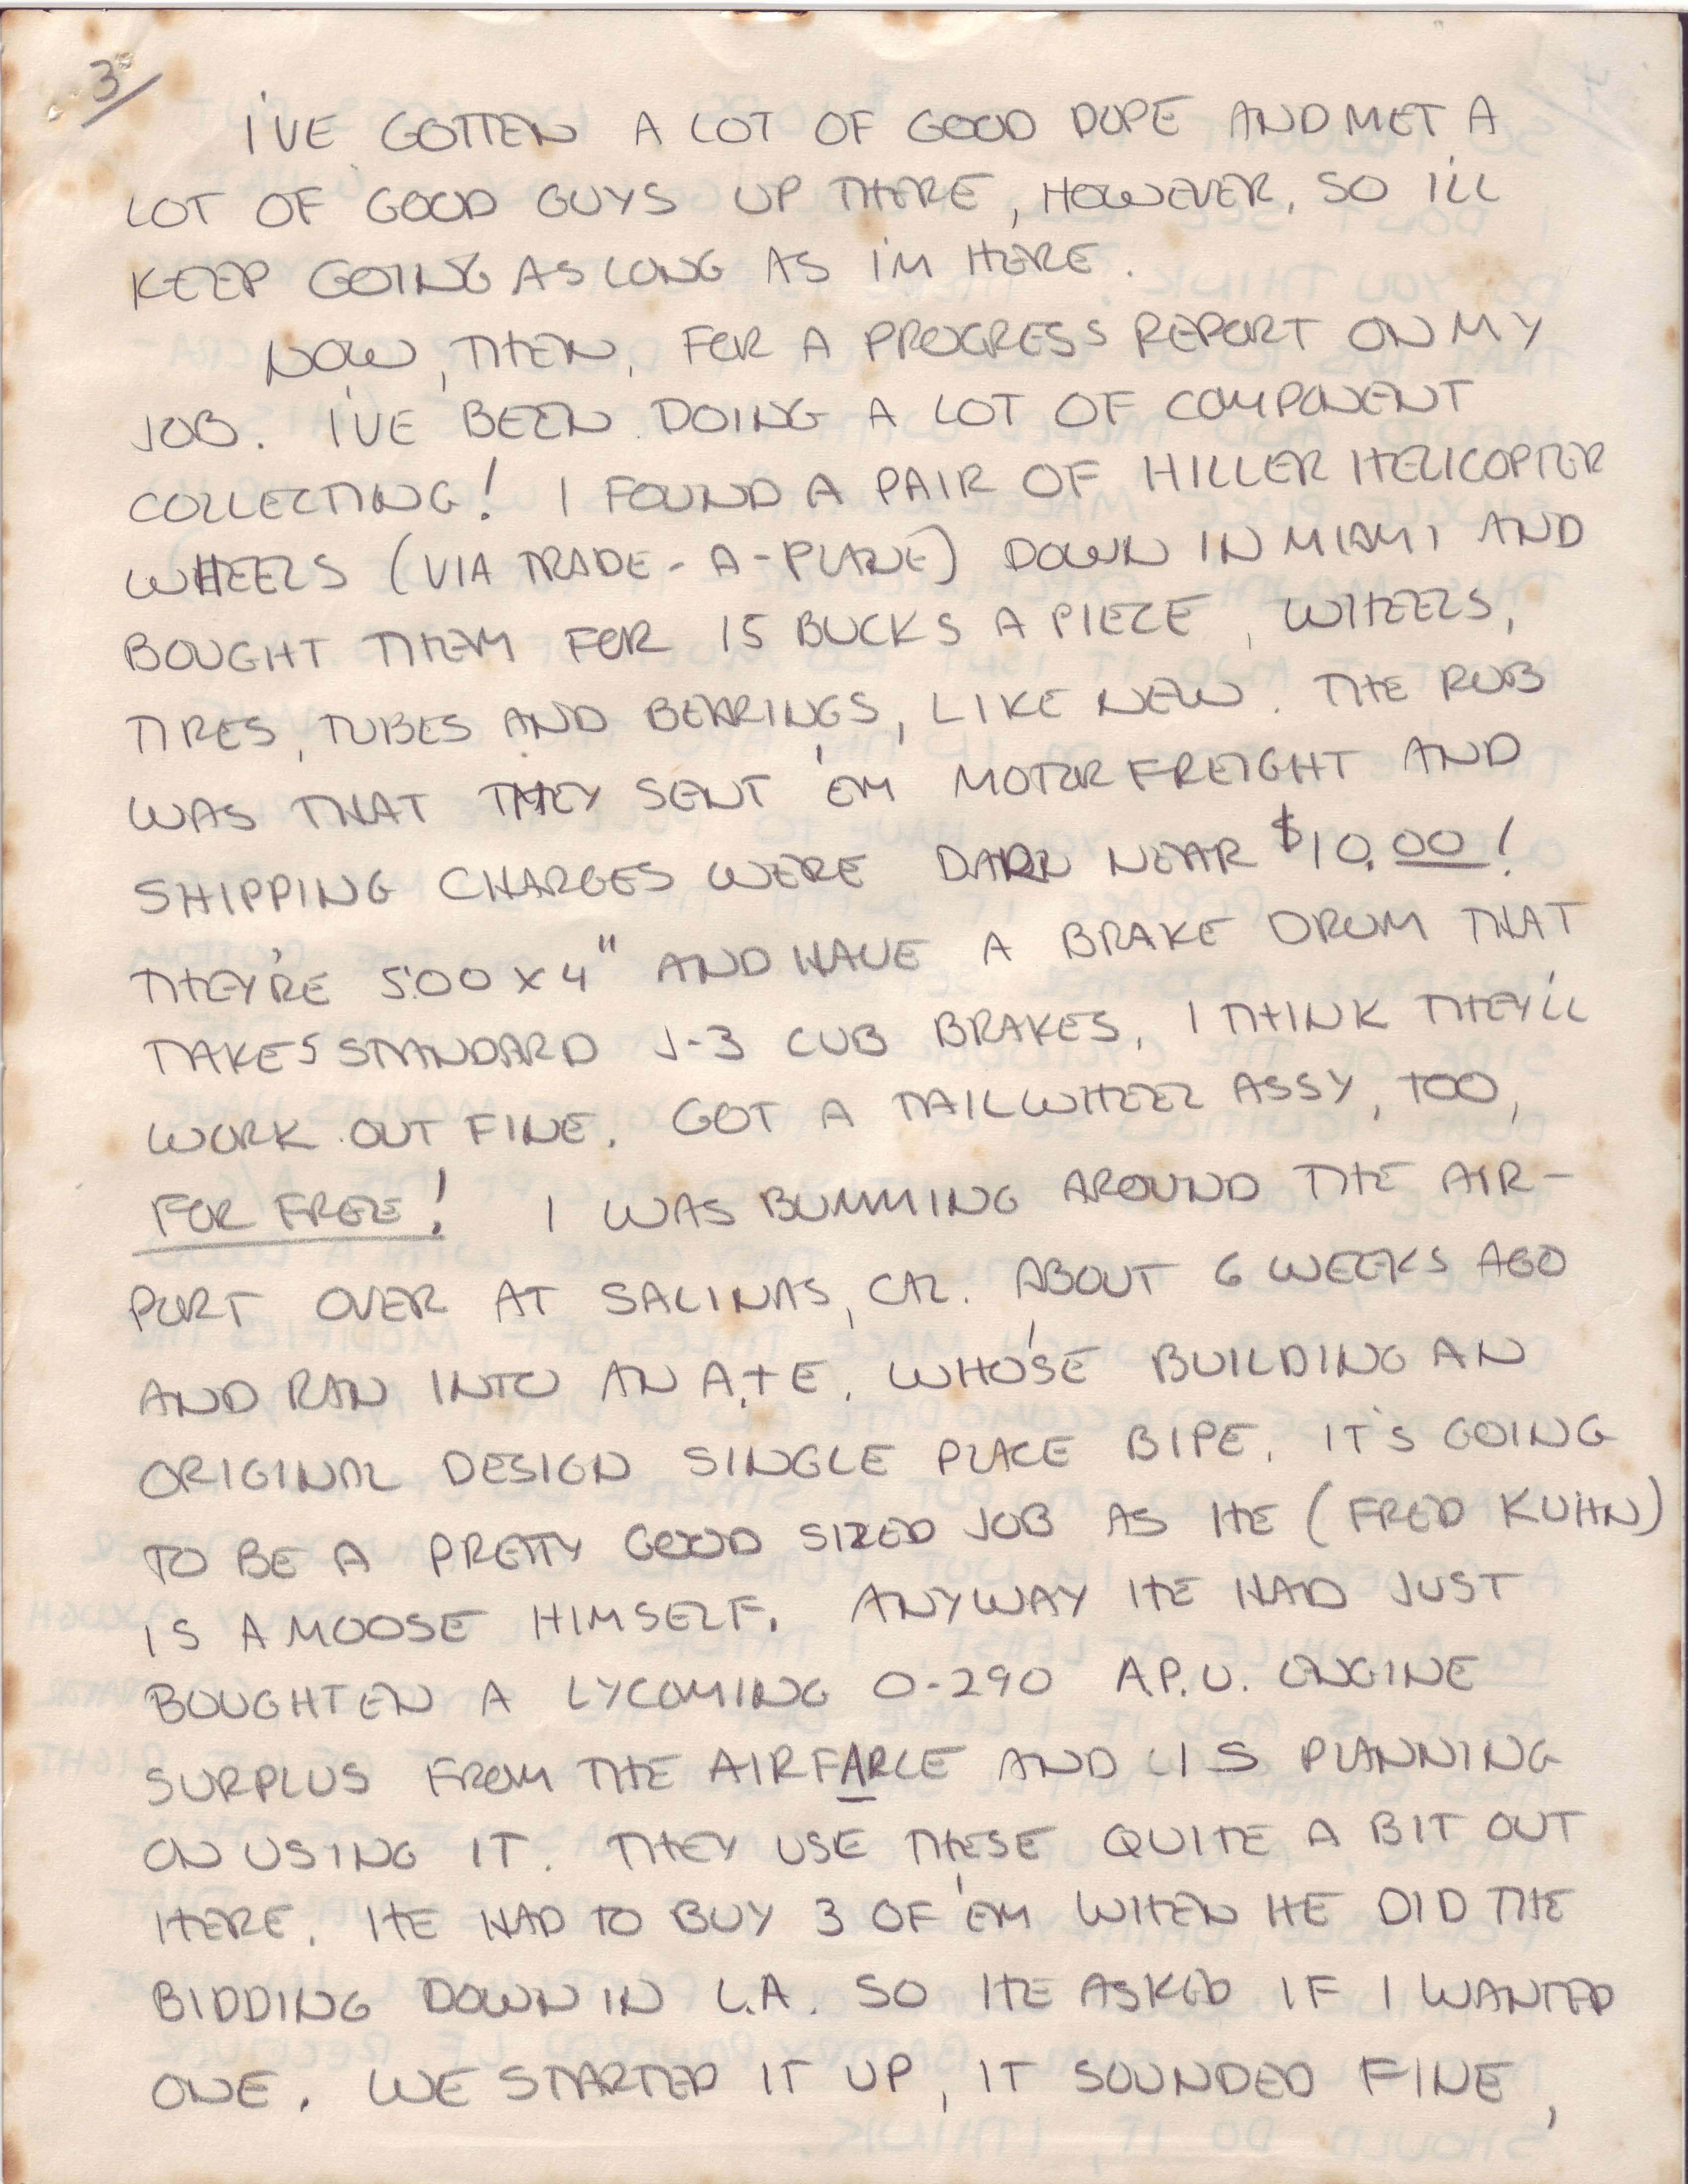 3
I'VE GOTTEN A LOT OF GOOD DOPE AND MET A
LOT OF GOOD GUYS UP THERE, HOWEVER, SO I'LL
KEEP GOING AS LONG AS I'M HERE.
NOW, THEN, FOR A PROGRESS REPORT ON MY
JOB. I'VE BEEN DOING A LOT OF COMPONENT
COLLECTING! I FOUND A PAIR OF HILLER HELICOPTER
WHEELS (VIA TRADE-A-PLANE) DOWN IN MIAMI AND
BOUGHT THEM FOR 15 BUCKS A PIECE, WHEELS,
TIRES, TUBES AND BEARINGS, LIKE NEW. THE RUB
WAS THAT THEY SENT 'EM MOTOR FREIGHT AND
SHIPPING CHARGES WERE DARN NEAR $10.00!
THEY'RE 5:00 X 4" AND HAVE A BRAKE DRUM THAT
TAKES STANDARD J-3 CUB BRAKES. I THINK THEY'LL
WORK OUT FINE. GOT A TAILWHEEL ASSY, TOO,
FOR FREE! I WAS BUMMING AROUND THE AIR-
PORT OVER AT SALINAS, CAL. ABOUT 6 WEEKS AGO
AND RAN INTO AN A.+E. WHO'SE BUILDING AN
ORIGINAL DESIGN SINGLE PLACE BIPE. IT'S GOING
TO BE A PRETTY GOOD SIZED JOB AS HE (FRED KUHN)
IS A MOOSE HIMSELF. ANYWAY HE HAD JUST
BOUGHTEN A LYCOMING O-290 A.P.U. ENGINE
SURPLUS FROM THE AIRFARCE AND IS PLANNING
ON USING IT. THEY USE THESE QUITE A BIT OUT
HERE. HE HAD TO BUY 3 OF 'EM WHEN HE DID THE
BIDDING DOWN IN L.A. SO HE ASKED IF I WANTED
ONE. WE STARTED IT UP, IT SOUNDED FINE,